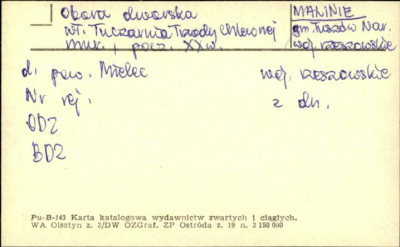 Obora dworska
wł. Tuczarnia Trzody Chlewnej
mur., pocz. XX w.
MALINIE
gm. Tuszów Nar.
woj. rzeszowskie
d. pow. Mielec
woj. rzeszowskie
Nr rej.
z dn.
ODZ
BDZ
Pu-B-143 Karta katalogowa wydawnictw zwartych i ciągłych.
WA Olsztyn z. 3/DW OZGraf. ZP Ostróda z. 19 n. 3 150 000